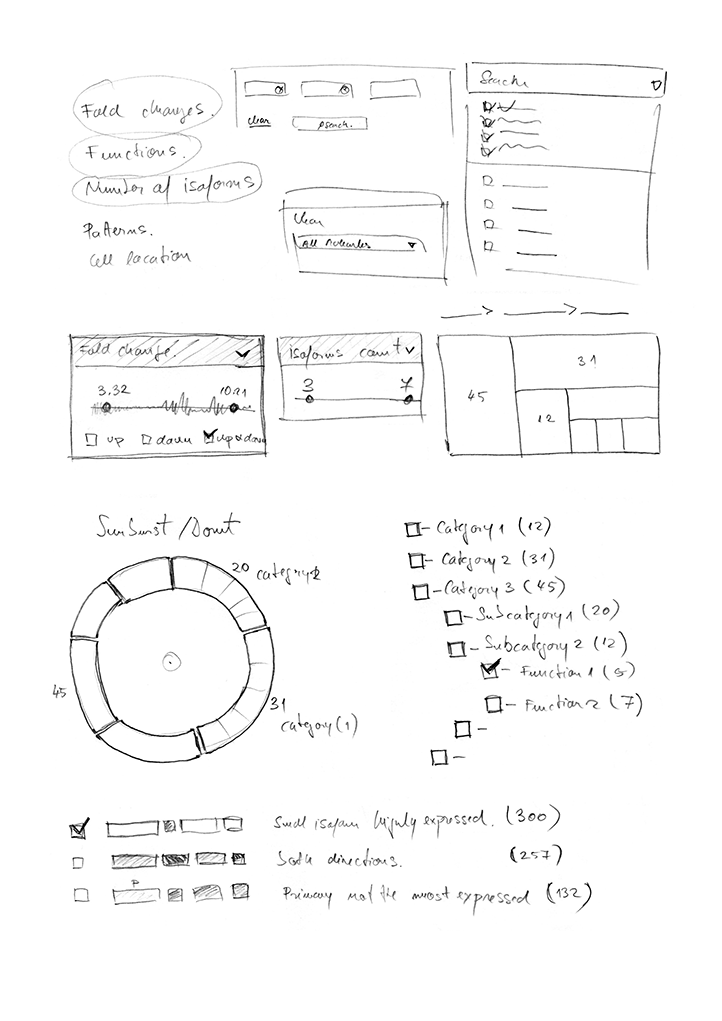 Fold changes.
Functions.
Number of isoforms
Patterns.
Cell location
clear
search.
Search
clear
All molecules
Fold change.
3.32
10.21
up
down
up & down
isoforms count
3
7
45
31
12
Sunburst / Donut
20 category 2
45
31
category (1)
Category 1 (12)
Category 2 (31)
Category 3 (45)
Subcategory 1 (20)
Subcategory 2 (12)
Function 1 (5)
Function 2 (7)
Small isoform highly expressed. (300)
Both directions. (257)
P
Primary not the most expressed (132)